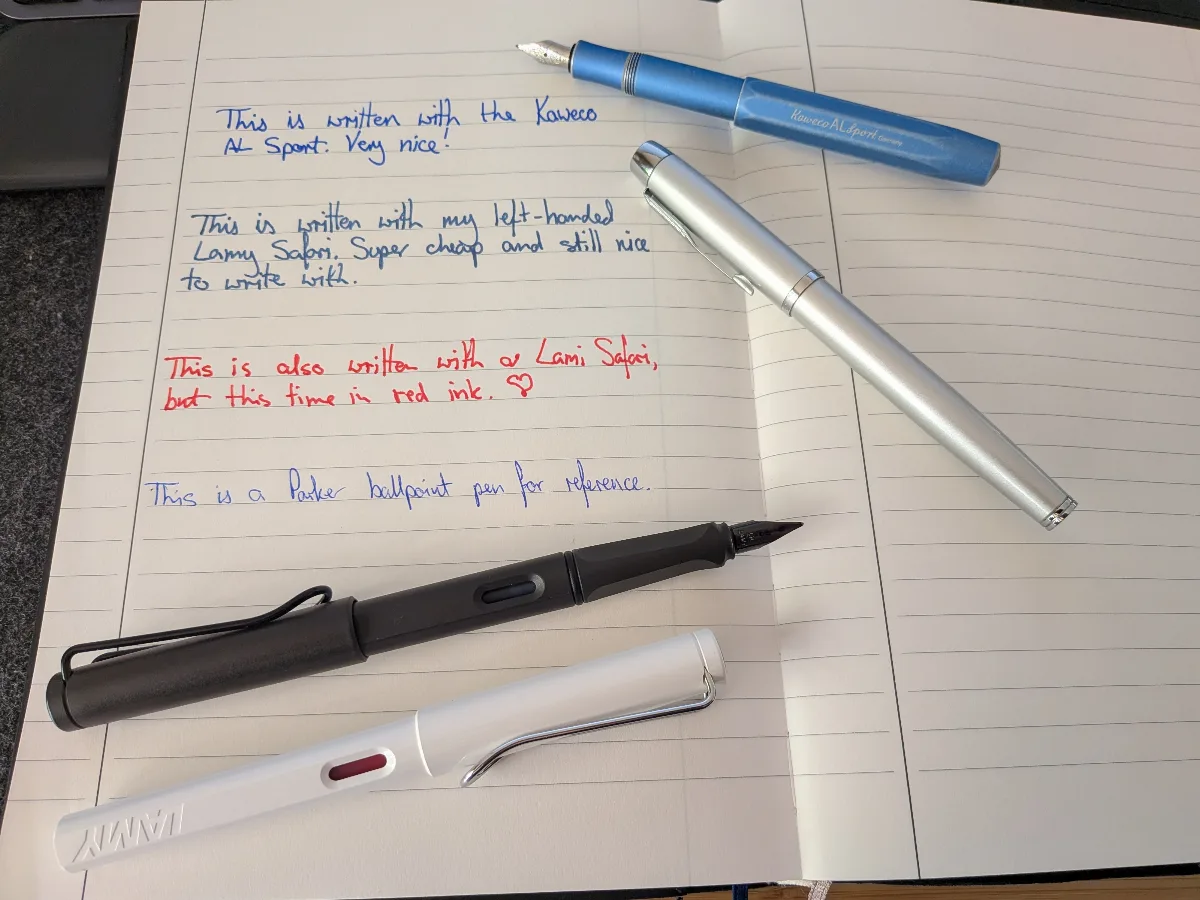 This is written with the Kaweco
AL Sport. Very nice!
This is written with my left-handed
Lamy Safari. Super cheap and still nice
to write with.
This is also written with a Lami Safari,
but this time in red ink. ♡
This is a Parker ballpoint pen for reference.
Kaweco AL Sport
LAMY